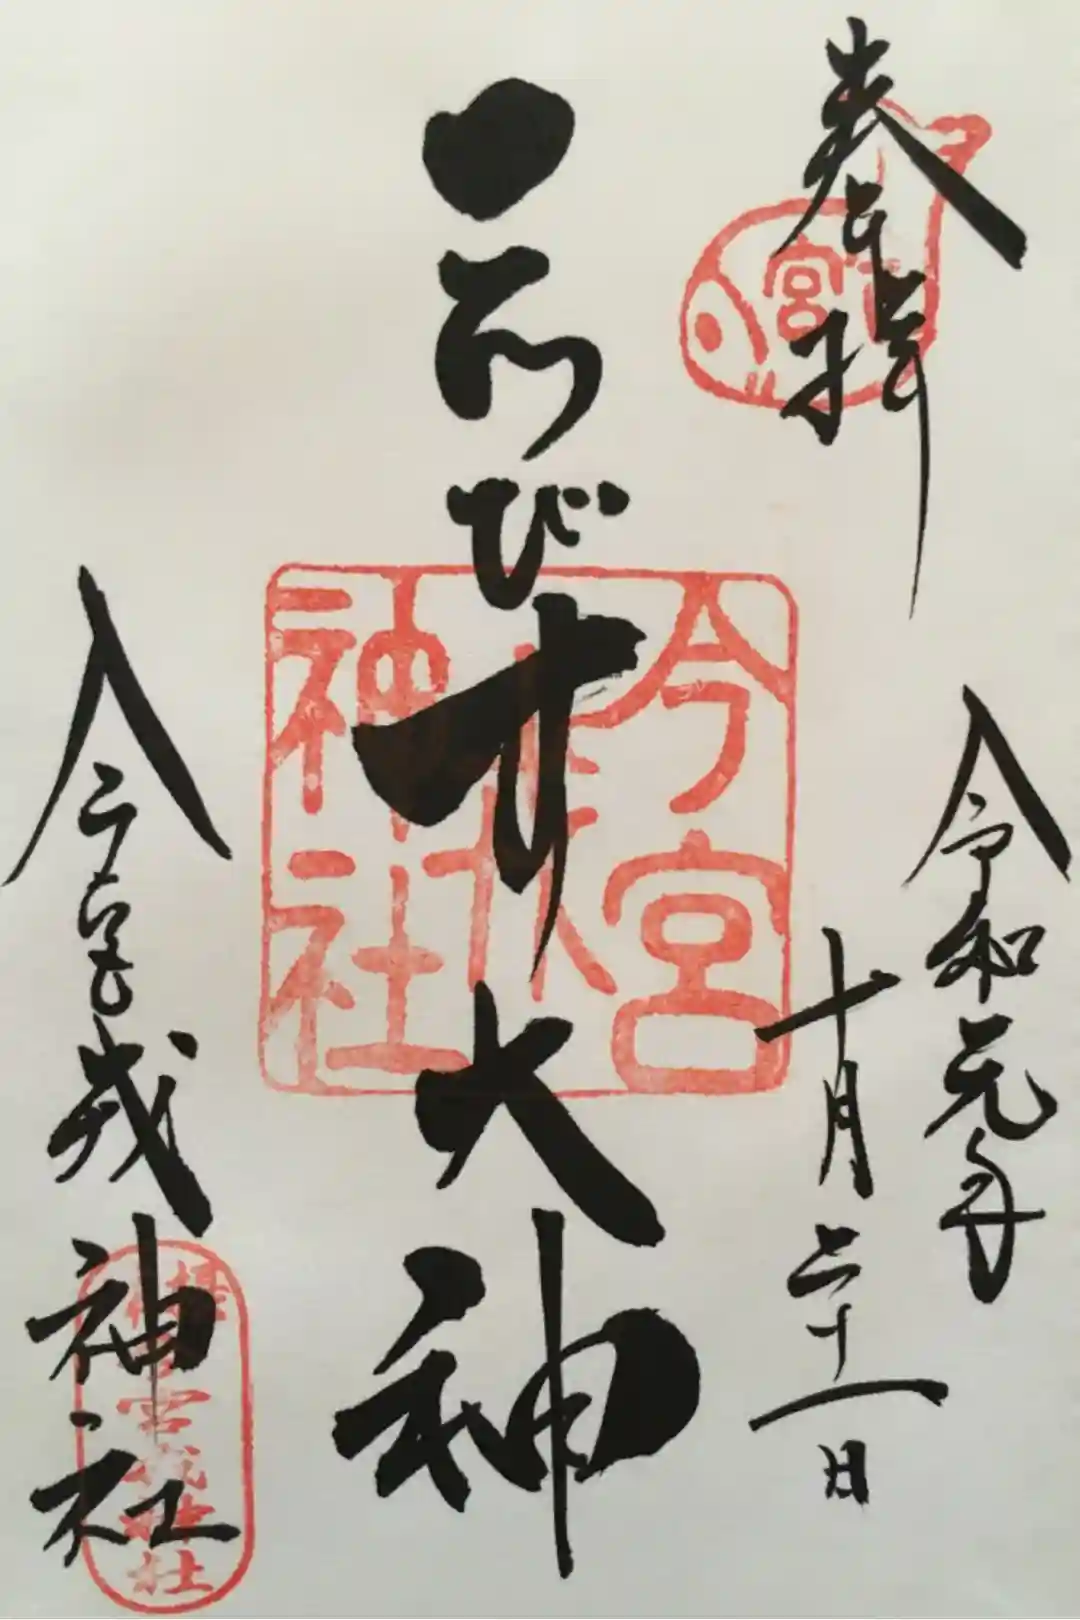 奉拝
令和元年
十月二十一日
ゑびす大神
今宮戎神社
今宮戎神社